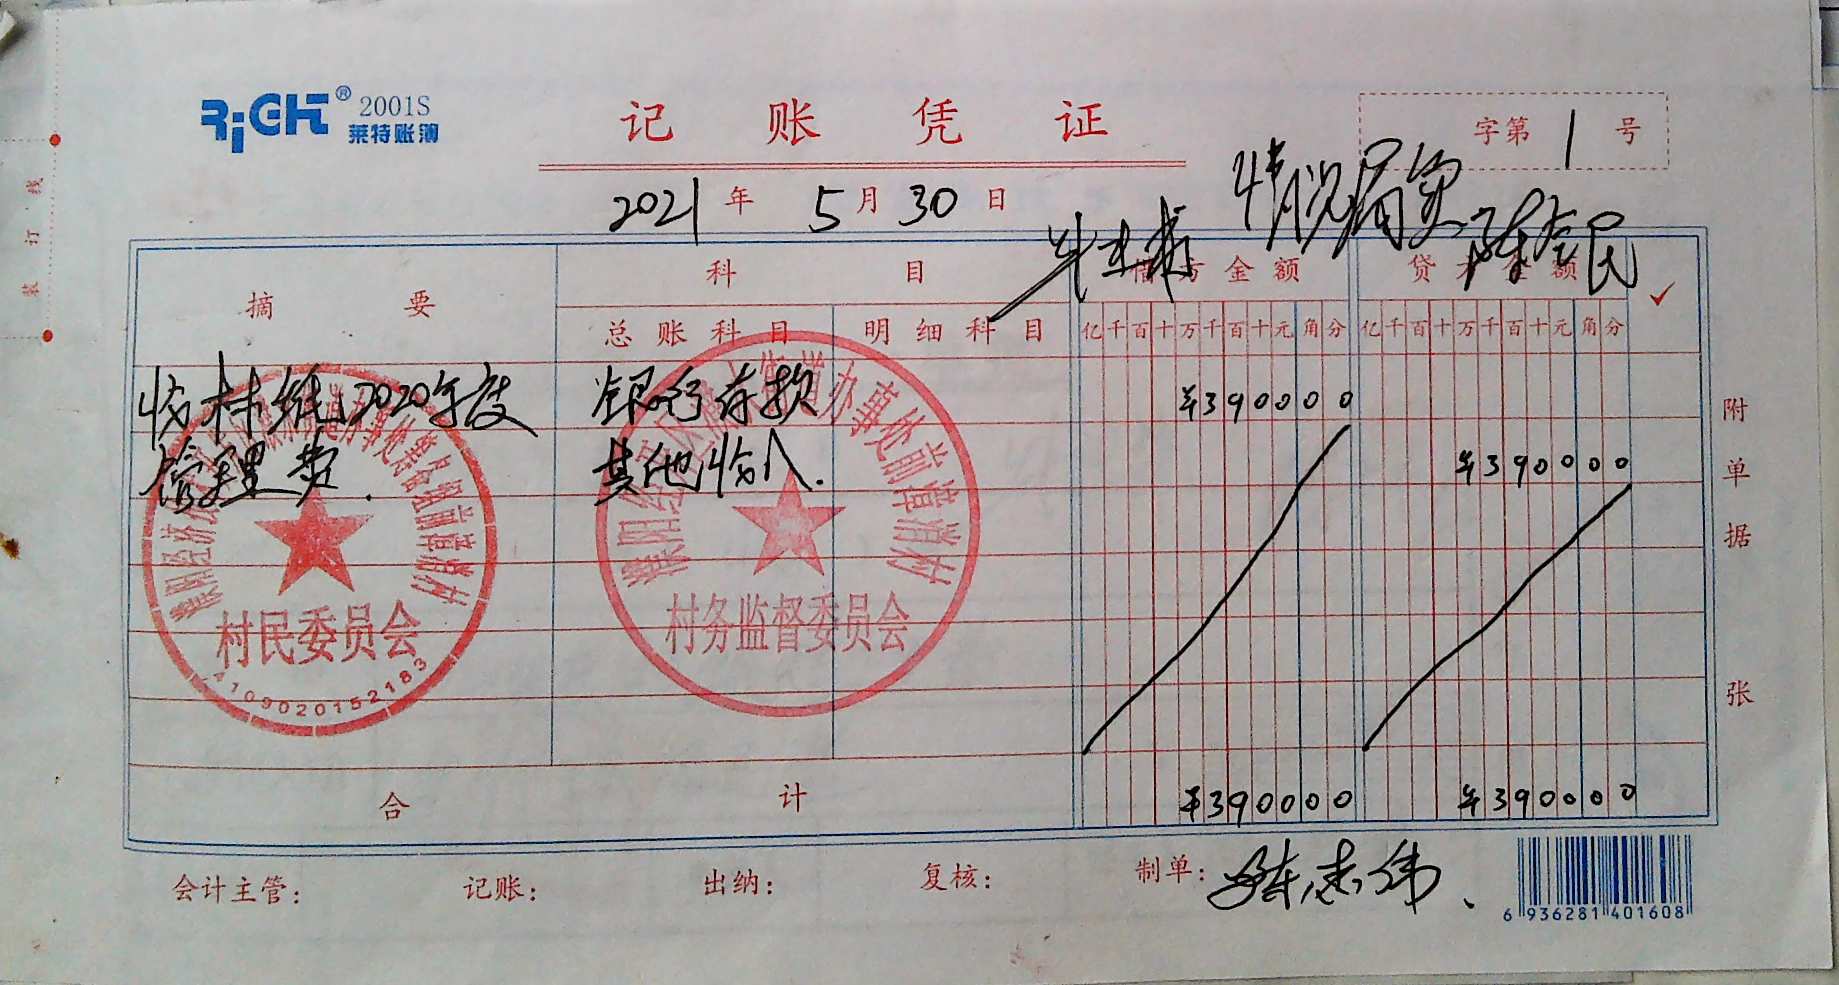 RiGHT® 2001S
莱特账簿
记账凭证
字第 1 号
2021年 5月 30日
情况属实
摘要
科目
借方金额
贷方金额
✓
总账科目
明细科目
亿千百十万千百十元角分
亿千百十万千百十元角分
收林纸厂2020年度
管理费.
银行存款
¥390000
其他收入.
¥390000
村民委员会
4109020152183
村务监督委员会
附单据 张
合计
¥390000
¥390000
会计主管:
记账:
出纳:
复核:
制单: 陈志伟、
6 936281 401608
装订线